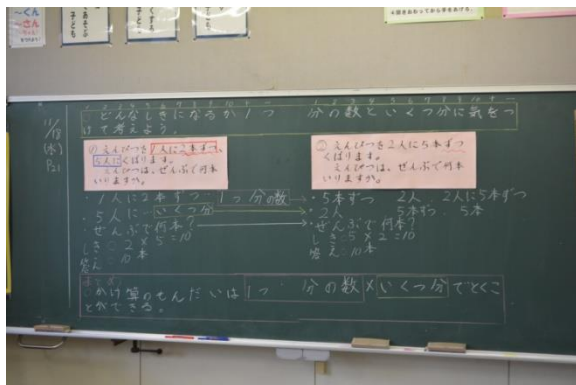 ～くん
～さん
どんなしきになるか1つ分の数といくつ分に気をつ
けて考えよう。
11/18
(水)
P21
① えんぴつを1人に2本ずつ
5人にくばります。
えんぴつは、ぜんぶで何本
いりますか。
② えんぴつを2人に5本ずつ
くばります。
えんぴつは、ぜんぶで何本
いりますか。
・1人に2本ずつ 1つ分の数
・5人に いくつ分
・ぜんぶで何本?
しき 2×5=10
答え 10本
・5本ずつ 2人 2人に5本ずつ
・2人 5本ずつ 5本
・ぜんぶで何本?
しき 5×2=10
答え 10本
かけ算のもんだいは 1つ分の数×いくつ分でとくこ
とができる。